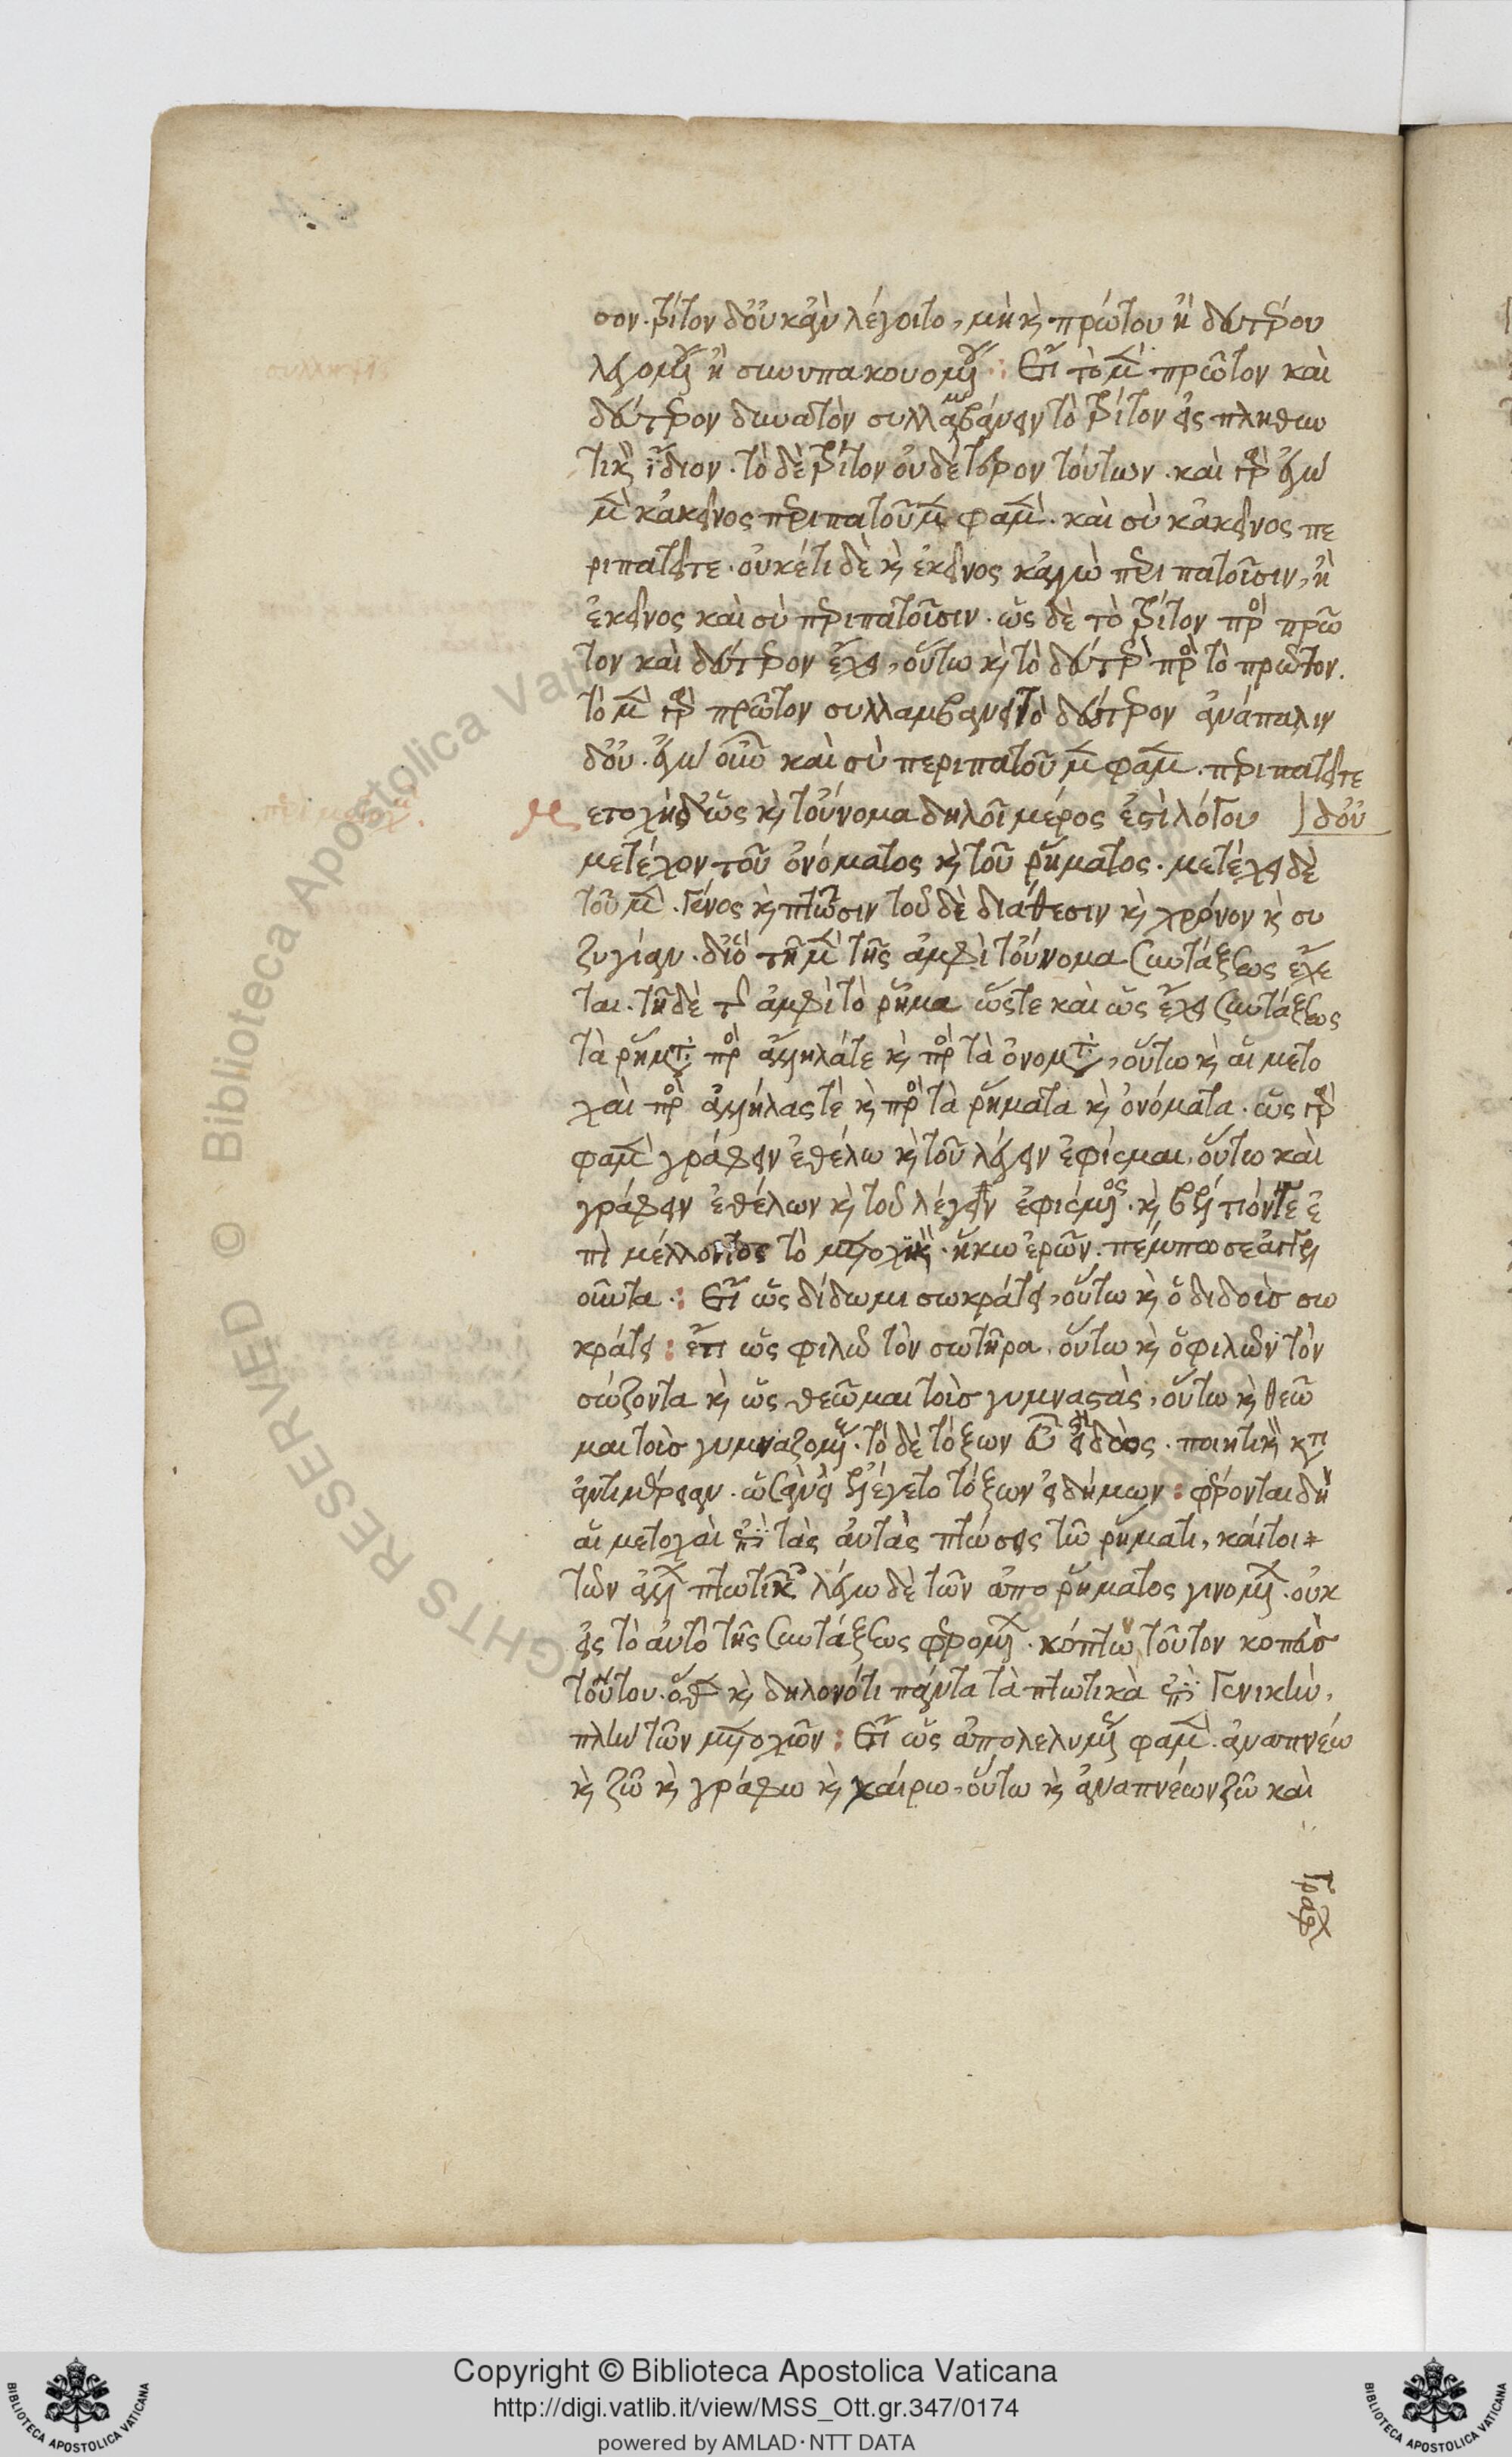 σον. τρίτον δ' οὐκ ἂν λέγοιτο, μὴ καὶ πρώτου ἢ δευτέρου
λεγομένου ἢ συνυπακουομένου : Ἔτι τὸ μὲν πρῶτον καὶ
δεύτερον δυνατὸν συλλαμβάνειν τὸ τρίτον εἰς πληθυν
τικὸν ἴδιον. τὸ δὲ τρίτον οὐδέτερον τούτων. καὶ γὰρ ἐγὼ
μὲν κἀκεῖνος περιπατοῦμεν φαμὲν. καὶ σὺ κἀκεῖνος πε
ριπατεῖτε. οὐκέτι δὲ καὶ ἐκεῖνος κἀγὼ περιπατοῦσιν, ἢ
ἐκεῖνος καὶ σὺ περιπατοῦσιν. ὡς δὲ τὸ τρίτον πρὸς πρῶ
τον καὶ δεύτερον ἔχει, οὕτω καὶ τὸ δεύτερον πρὸς τὸ πρῶτον.
τὸ μὲν γὰρ πρῶτον συλλαμβάνει τὸ δεύτερον ἀνάπαλιν
δ' οὐ. ἐγὼ οὖν καὶ σὺ περιπατοῦμεν φαμὲν. περιπατεῖτε
Μετοχὴ δ' ὡς καὶ τοὔνομα δηλοῖ μέρος ἐστὶ λόγου | δ' οὐ
μετέχον τοῦ ὀνόματος καὶ τοῦ ῥήματος. μετέχει δὲ
τοῦ μὲν γένος καὶ πτῶσιν τοῦ δὲ διάθεσιν καὶ χρόνον καὶ συ
ζυγίαν. διὸ τῇ μὲν τῆς ἀμφὶ τοὔνομα συντάξεως ἔχε
ται. τῇ δὲ τῆς ἀμφὶ τὸ ῥῆμα ὥστε καὶ ὡς ἔχει συντάξεως
τὰ ῥήματα πρὸς ἄλληλά τε καὶ πρὸς τὰ ὀνόματα, οὕτω καὶ αἱ μετο
χαὶ πρὸς ἀλλήλας τὲ καὶ πρὸς τὰ ῥήματα καὶ ὀνόματα. ὡς γὰρ
φαμὲν γράφειν ἐθέλω καὶ τοῦ λέγειν ἐφίεμαι, οὕτω καὶ
γράφειν ἐθέλων καὶ τοῦ λέγειν ἐφιέμενος. καὶ βέλτιόν τε ἐ
πὶ μέλλοντος τὸ μετοχικὸν. ἥκω ἐρῶν. πέμπω σε ἀγγελ
οῦντα : Ἔτι ὡς δίδωμι σωκράτει, οὕτω καὶ ὁ διδοὺς σω
κράτει : ἔτι ὡς φιλῶ τὸν σωτῆρα, οὕτω καὶ ὁ φιλῶν τὸν
σώζοντα καὶ ὡς θεῶμαι τοὺς γυμναστὰς, οὕτω καὶ θεῶ
μαι τοὺς γυμναζομένους. τὸ δὲ τόξων εὖ εἰδὼς. ποιητικὸν κατ
ἀντιμέρειαν. ὡσανεὶ ἐλέγετο τόξων εἰδήμων : φέρονται δὴ
αἱ μετοχαὶ ἐπὶ τὰς αὐτὰς πτώσεις τῷ ῥήματι, καίτοι
τῶν ἄλλων πτωτικῶν λέγω δὲ τῶν ἀπὸ ῥήματος γινομένων. οὐκ
εἰς τὸ αὐτὸ τῆς συντάξεως φερομένων. κόπτω τοῦτον κοπεὺς
τούτου. ὅθεν καὶ δηλονότι πάντα τὰ πτωτικὰ ἐπὶ γενικὴν,
πλὴν τῶν μετοχῶν : Ἔτι ὡς ἀπολελυμένως φαμὲν. ἀναπνέω
καὶ ζῶ καὶ γράφω καὶ χαίρω, οὕτω καὶ ἀναπνέων ζῶ καὶ
γράφων
Copyright © Biblioteca Apostolica Vaticana
http://digi.vatlib.it/view/MSS_Ott.gr.347/0174
powered by AMLAD·NTT DATA